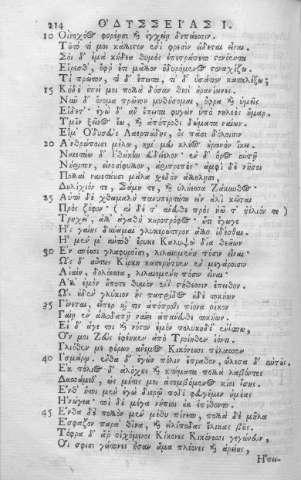 214 ὈΔΥΣΣΕΊΑΣ Ι.
10 Οἰνοχόος φορέῃσι καὶ ἐγχείῃ δεπάεσσιν.
Τοῦτό τί μοι κάλλιστον ἐνὶ φρεσὶν εἴδεται εἶναι.
Σοὶ δ' ἐμὰ κήδεα θυμὸς ἐπετράπετο στονόεντα
Εἴρεσθ', ὄφρ' ἔτι μᾶλλον ὀδυρόμενος στεναχίζω.
Τί πρῶτον, τί δ' ἔπειτα, τί δ' ὑστάτιον καταλέξω;
15 Κήδε' ἐπεί μοι πολλὰ δόσαν θεοὶ οὐρανίωνες.
Νῦν δ' ὄνομα πρῶτον μυθήσομαι, ὄφρα καὶ ὑμεῖς
Εἴδετ'· ἐγὼ δ' ἂν ἔπειτα φυγὼν ὕπο νηλεὲς ἦμαρ,
Ὑμῖν ξεῖνος ἔω, καὶ ἀπόπροθι δώματα ναίων.
Εἴμ' Ὀδυσεὺς Λαερτιάδης, ὃς πᾶσι δόλοισιν
20 Ἀνθρώποισι μέλω, καί μευ κλέος οὐρανὸν ἵκει.
Ναιετάω δ' Ἰθάκην εὐδείελον· ἐν δ' ὄρος αὐτῇ
Νήριτον, εἰνοσίφυλλον, ἀριπρεπές· ἀμφὶ δὲ νῆσοι
Πολλαὶ ναιετάουσι μάλα σχεδὸν ἀλλήλῃσι,
Δουλίχιόν τε, Σάμη τε, καὶ ὑλήεσσα Ζάκυνθος·
25 Αὐτὴ δὲ χθαμαλὴ πανυπερτάτη εἰν ἁλὶ κεῖται
Πρὸς ζόφον· (αἱ δέ τ' ἄνευθε πρὸς ἠῶ τ' ἠέλιόν τε)
Τρηχεῖ', ἀλλ' ἀγαθὴ κουροτρόφος· οὔτι ἔγωγε
Ἧς γαίης δύναμαι γλυκερώτερον ἄλλο ἰδέσθαι.
Ἦ μέν μ' αὐτόθ' ἔρυκε Καλυψὼ δῖα θεάων
30 Ἐν σπέσσι γλαφυροῖσι, λιλαιομένη πόσιν εἶναι.
Ὣς δ' αὔτως Κίρκη κατερήτυεν ἐν μεγάροισιν
Αἰαίη, δολόεσσα, λιλαιομένη πόσιν εἶναι·
Ἀλλ' ἐμὸν οὔποτε θυμὸν ἐνὶ στήθεσσιν ἔπειθον.
Ὣς οὐδὲν γλύκιον ἧς πατρίδος οὐδὲ τοκήων
35 Γίνεται, εἴπερ καί τις ἀπόπροθι πίονα οἶκον
Γαίῃ ἐν ἀλλοδαπῇ ναίει ἀπάνευθε τοκήων.
Εἰ δ' ἄγε τοι καὶ νόστον ἐμὸν πολυκηδέ' ἐνίσπω,
Ὅν μοι Ζεὺς ἐφέηκεν ἀπὸ Τροίηθεν ἰόντι.
Ἰλιόθεν με φέρων ἄνεμος Κικόνεσσι πέλασσεν
40 Ἰσμάρῳ. ἔνθα δ' ἐγὼ πόλιν ἔπραθον, ὤλεσα δ' αὐτούς.
Ἐκ πόλιος δ' ἀλόχους καὶ κτήματα πολλὰ λαβόντες
Δασσάμεθ', ὡς μή τίς μοι ἀτεμβόμενος κίοι ἴσης.
Ἔνθ' ἤτοι μὲν ἐγὼ διερῷ ποδὶ φευγέμεν ἡμέας
Ἠνώγεα· τοὶ δὲ μέγα νήπιοι οὐκ ἐπίθοντο.
45 Ἔνθα δὲ πολλὸν μὲν μέθυ πίνετο, πολλὰ δὲ μῆλα
Ἔσφαζον παρὰ θῖνα, καὶ εἰλίποδας ἕλικας βοῦς.
Τόφρα δ' ἄρ οἰχόμενοι Κίκονες Κικόνεσσι γεγώνευν,
Οἵ σφισι γείτονες ἦσαν ἅμα πλέονες καὶ ἀρείους,
Ἤπει-